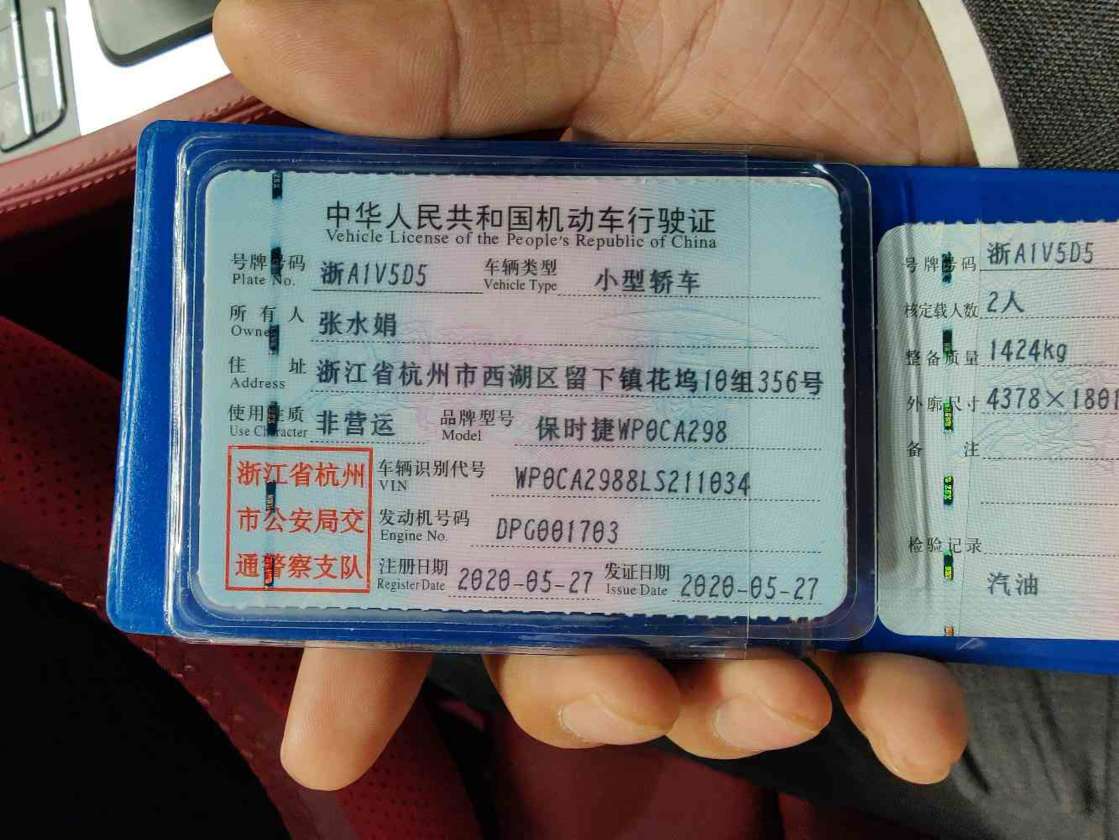 中华人民共和国机动车行驶证
Vehicle License of the People's Republic of China
号牌号码 浙A1V5D5 车辆类型 小型轿车
Plate No. Vehicle Type
所有人 张水娟
Owner
住址 浙江省杭州市西湖区留下镇花坞10组356号
Address
使用性质 非营运 品牌型号 保时捷WP0CA298
Use Character Model
浙江省杭州
市公安局交
通警察支队
车辆识别代号 WP0CA2988LS211034
VIN
发动机号码 DPG001703
Engine No.
注册日期 2020-05-27 发证日期 2020-05-27
Register Date Issue Date
号牌号码 浙A1V5D5
核定载人数 2人
整备质量 1424kg
外廓尺寸 4378×1801
备注
检验记录
汽油